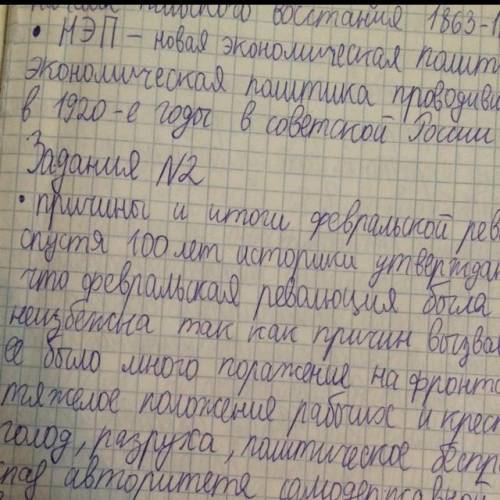 польского восстания 1863-
• НЭП – новая экономическая полит
экономическая политика проводив
в 1920-е годы в советской России
Задания №2
• причины и итоги февральской рев
спустя 100 лет историки утвержда
что февральская революция была
неизбежна так как причин вызва
её было много поражение на фронт
тяжелое положение рабочих и крест
голод, разруха, политическое бесп
авторитета самодержавной